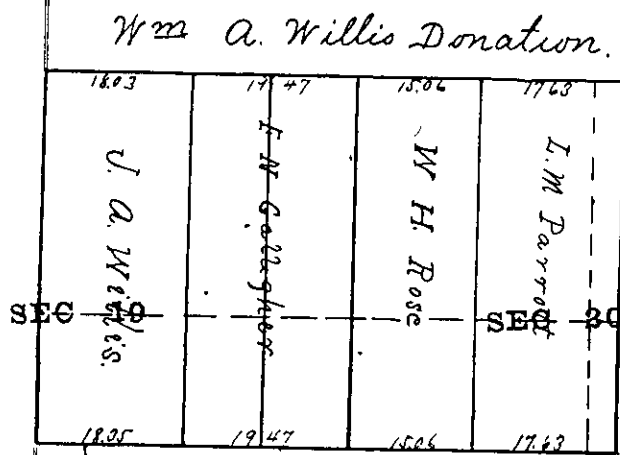 Wm A. Willis Donation.
18.03 19 47 15.06 17.63
J. A. Willis.
W H. Rose
L. M Parrott
SEC 19 SEC 30
18.05 19 47 15.06 17.63